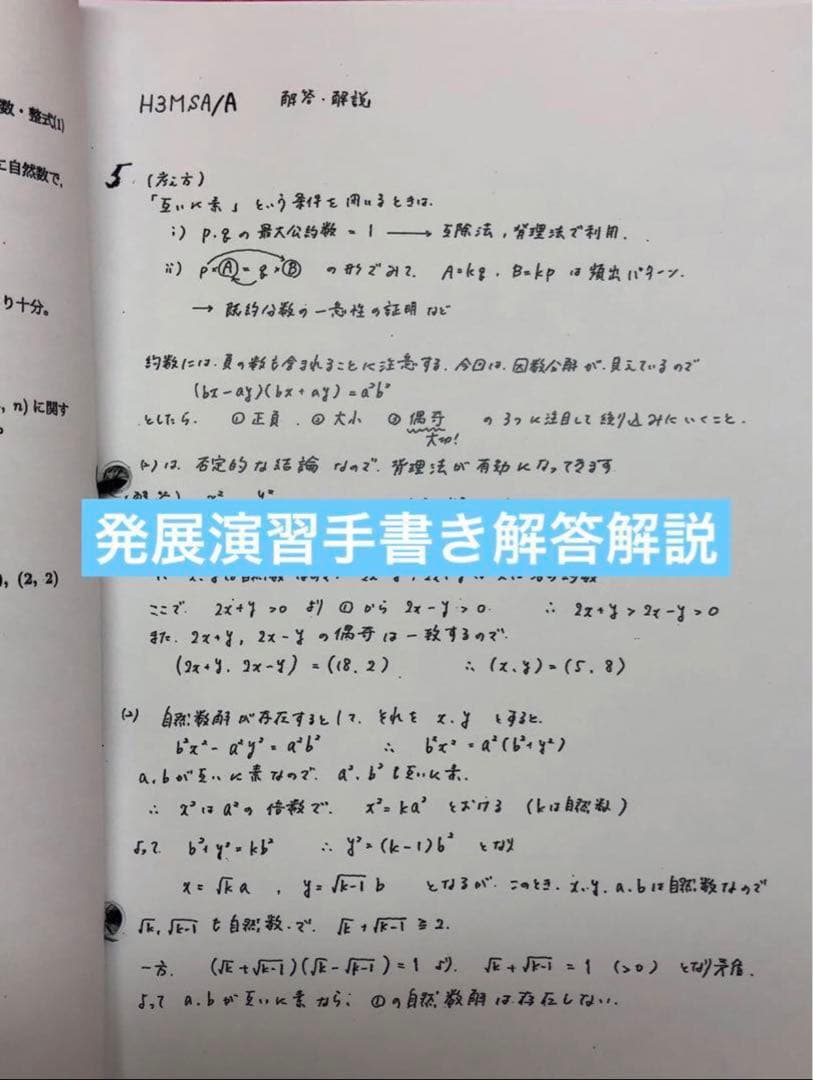 数・整式(1)
に自然数で,
り十分。
, n) に関す
), (2, 2)
H3MSA/A 解答・解説
5 (考え方)
「互いに素」という条件を用いるときは.
i) p.qの最大公約数 = 1 → 互除法, 背理法で利用.
ii) p×Ⓐ = q×Ⓑ の形でみて. A=kq, B=kp は頻出パターン.
→ 既約分数の一意性の証明など
約数には, 負の数も含まれることに注意する. 今回は, 因数分解が見えているので
(bx-ay)(bx+ay)=a²b²
としたら. ①正負. ②大小 ③偶奇 の3つに注目して絞り込みにいくこと.
大切!
(2)は, 否定的な結論なので, 背理法が有効になってきます
発展演習手書き解答解説
ここで. 2x+y>0 より ①から 2x-y>0. ∴ 2x+y>2x-y>0
また. 2x+y, 2x-y の偶奇は一致するので.
(2x+y, 2x-y) = (18, 2) ∴ (x,y) = (5, 8)
(2) 自然数解が存在するとして. それを x.y とすると.
b²x²-a²y²=a²b² ∴ b²x²=a²(b²+y²)
a.bが互いに素なので. a².b²も互いに素.
∴ x²はa²の倍数で. x²=ka² とおける (kは自然数)
よって b²+y²=kb² ∴ y²=(k-1)b² となり
x=√k a , y=√k-1 b となるが. このとき. x.y.a.bは自然数なので
√k, √k-1 も自然数で. √k+√k-1 ≧ 2.
一方. (√k+√k-1)(√k-√k-1)=1 より. √k+√k-1 = 1 (>0) となり矛盾.
よって a.bが互いに素なら, ①の自然数解は存在しない.